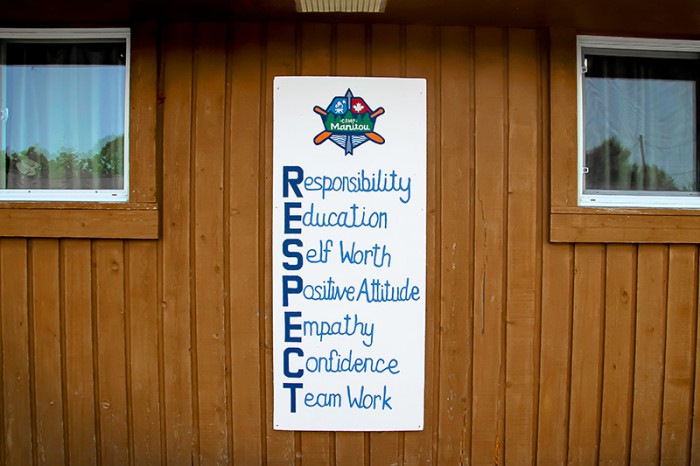 CAMP
Manitou
Responsibility
Education
Self Worth
Positive Attitude
Empathy
Confidence
Team Work